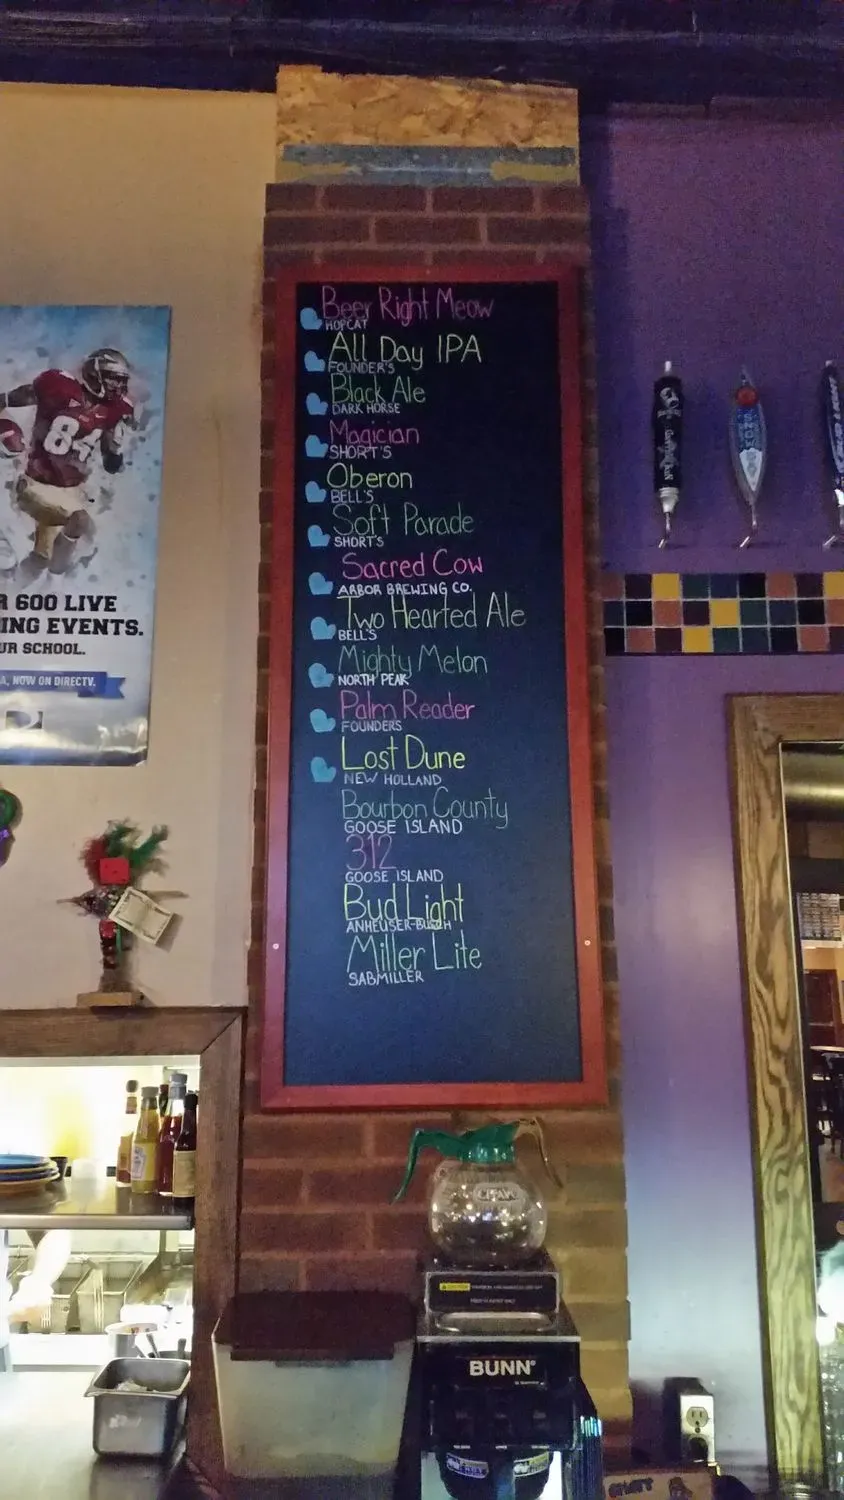 Beer Right Meow
HOPCAT
All Day IPA
FOUNDER'S
Black Ale
DARK HORSE
Magician
SHORT'S
Oberon
BELL'S
Soft Parade
SHORT'S
Sacred Cow
ARBOR BREWING CO.
Two Hearted Ale
BELL'S
Mighty Melon
NORTH PEAK
Palm Reader
FOUNDERS
Lost Dune
NEW HOLLAND
Bourbon County
GOOSE ISLAND
312
GOOSE ISLAND
Bud Light
ANHEUSER-BUSCH
Miller Lite
SABMILLER
84
600 LIVE
EVENTS.
SCHOOL.
NOW ON DIRECTV.
BUNN